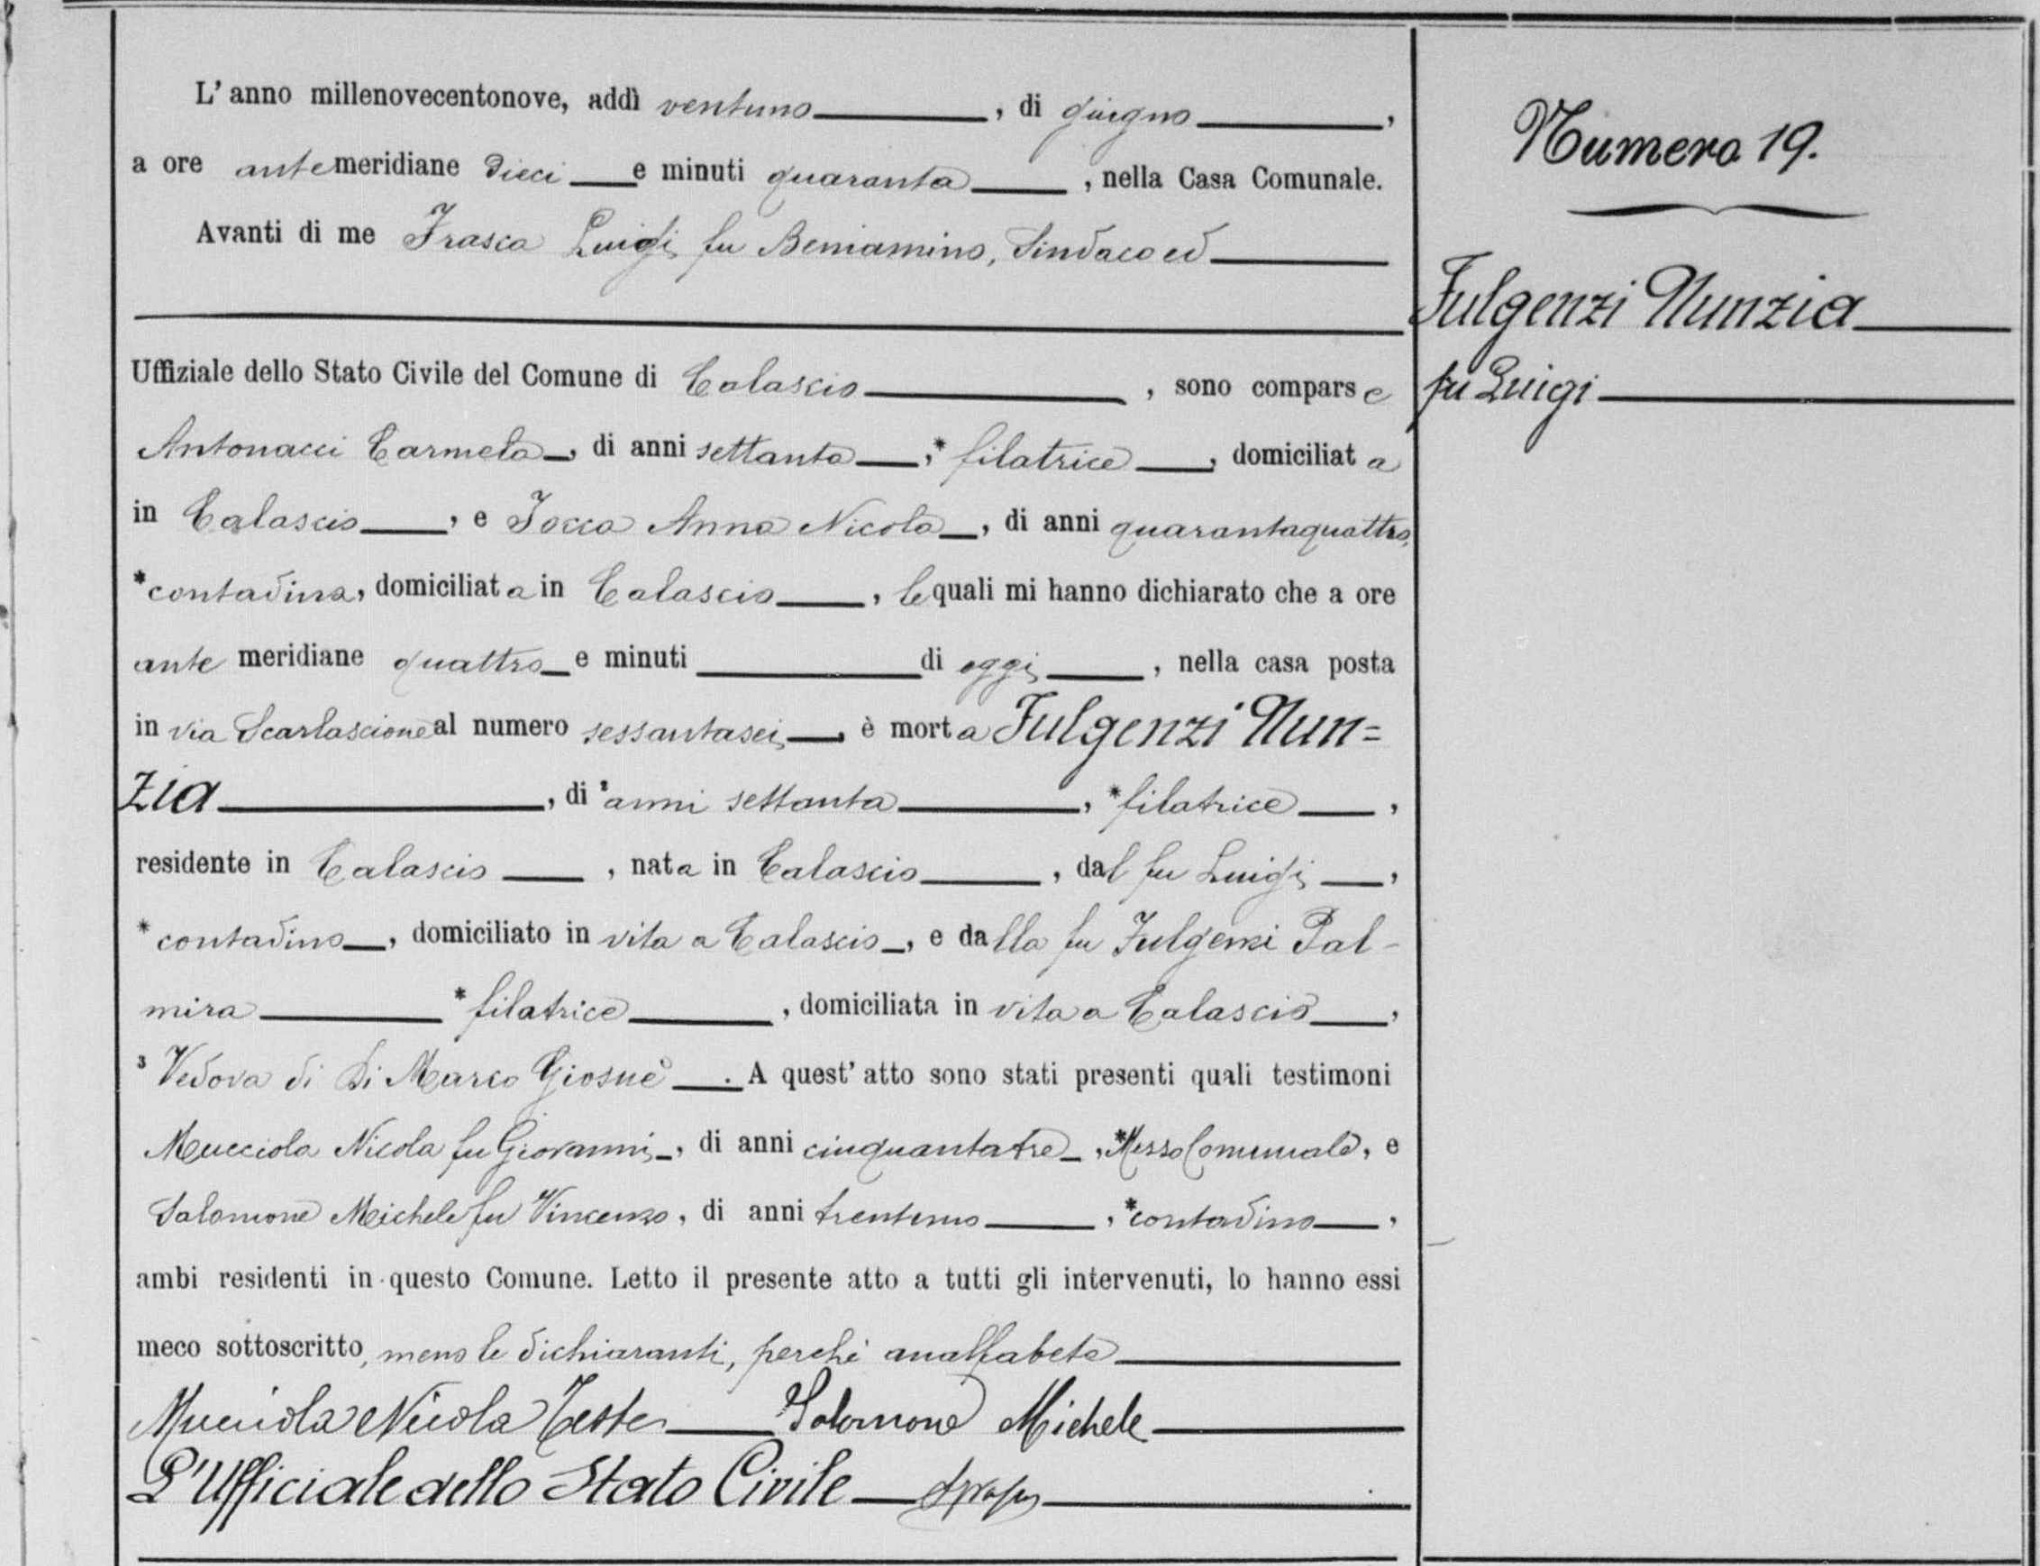 L'anno millenovecentonove, addì ventuno, di giugno,
a ore antemeridiane dieci e minuti quaranta, nella Casa Comunale.
Avanti di me Frasca Luigi fu Beniamino, Sindaco ed
Uffiziale dello Stato Civile del Comune di Calascio, sono comparse
Antonacci Carmela, di anni settanta, * filatrice, domiciliata
in Calascio, e Jocca Anna Nicola, di anni quarantaquattro,
* contadina, domiciliata in Calascio, le quali mi hanno dichiarato che a ore
ante meridiane quattro e minuti di oggi, nella casa posta
in via Scarlascione al numero sessantasei, è morta Fulgenzi Nun=
zia, di anni settanta, * filatrice,
residente in Calascio, nata in Calascio, dal fu Luigi,
* contadino, domiciliato in vita a Calascio, e dalla fu Fulgenzi Pal-
mira * filatrice, domiciliata in vita a Calascio,
³ Vedova di Di Marco Giosuè. A quest'atto sono stati presenti quali testimoni
Mucciola Nicola fu Giovanni, di anni cinquantatre, * Messo Comunale, e
Salomone Michele fu Vincenzo, di anni trentuno, * contadino,
ambi residenti in questo Comune. Letto il presente atto a tutti gli intervenuti, lo hanno essi
meco sottoscritto, meno le dichiaranti, perchè analfabete
Mucciola Nicola Teste Salomone Michele
L'Ufficiale dello Stato Civile
Numero 19.
Fulgenzi Nunzia
fu Luigi